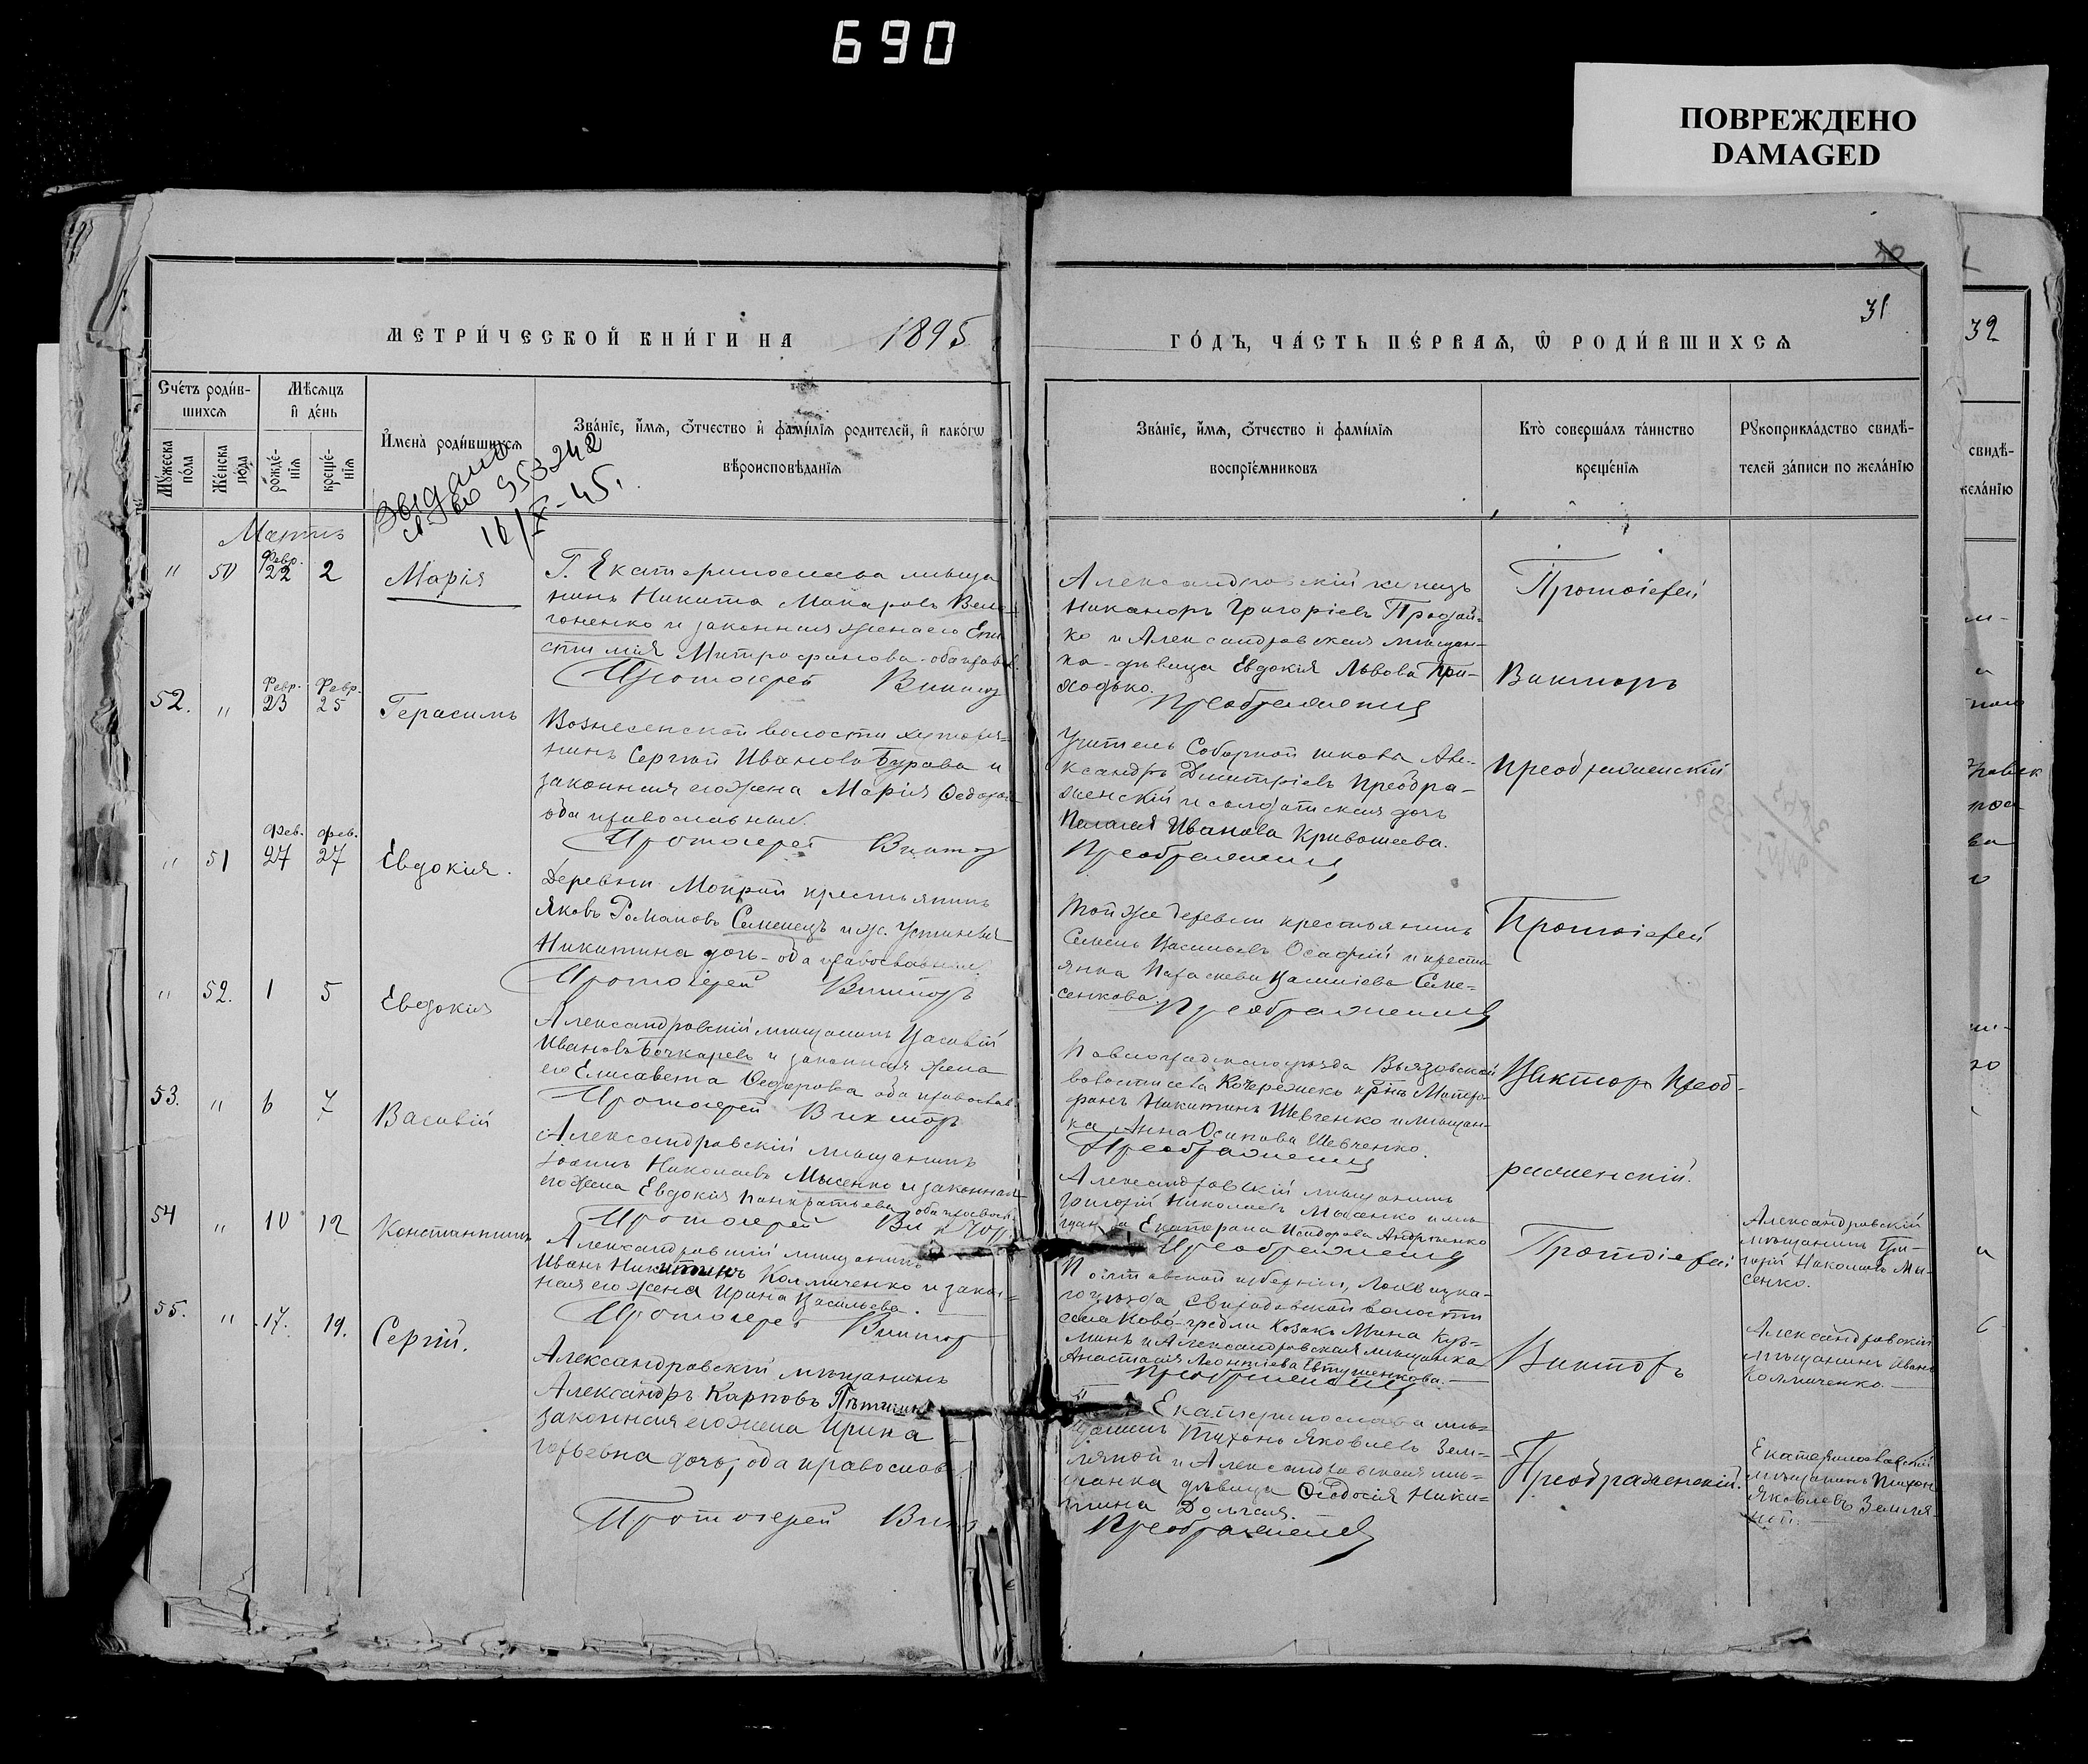 690
ПОВРЕЖДЕНО
DAMAGED
31
32
МЕТРИ́ЧЕСКОЙ КНИ́ГИ НА 1895
ГО́ДЪ, ЧА́СТЬ ПЕ́РВАѦ, Ѿ РОДИ́ВШИХСѦ
Сче́тъ роди́в-
шихсѧ
Мѣ́сѧцъ
и҆ де́нь
Мꙋ́жеска по́ла
Же́нска по́ла
рожде́-
нїѧ
креще́-
нїѧ
И҆мена̀ роди́вшихсѧ
Зва́нїе, и҆́мѧ, ѻ҆́тчество и҆ фамѝлїѧ родителей, и҆ како́гѡ
вѣроисповѣ́данїѧ
Зва́нїе, и҆́мѧ, ѻ҆́тчество и҆ фамѝлїѧ
воспрїе́мниковъ
Кто̀ соверша́лъ та́инство
креще́нїѧ
Рꙋкоприкла́дство свидѣ́-
телей за́писи по жела́нїю
свидѣ́-
жела́нїю
Выдано
553242
16/X-45.
Мартъ
" 50 Февр. 22 2 Марія
Г. Екатеринослава мѣща
нинъ Никита Макаровъ
и законная жена его
Митрофанова - оба правосл.
Протоіерей Викторъ
Александровскій купецъ
Никаноръ Григорьевъ Продай-
ко и Александровская мѣщан-
ка - дѣвица Евдокія Львова При-
ходько.
Преображенскій
Протоіерей
Викторъ
Преображенскій
52. " Февр. 23 Февр. 25 Герасимъ
Вознесенской волости
Сергій Ивановъ Бурава и
законная его жена Марія Ѳедорова
оба православные.
Протоіерей Викторъ
Учитель Соборной школы Але-
ксандръ Дмитріевъ Преобра-
женскій и солдатская дочь
Пелагія Иванова Кривошеева.
Преображенскій
" 51 Фев. 27 Фев. 27 Евдокія.
Деревни Мокрой крестьянинъ
Яковъ Романовъ Семенецъ и ж. Устинья
Никитина дочь - оба православные.
Протоіерей Викторъ
Той же деревни крестьянинъ
Семенъ Васильевъ Осадчій и кресть
янка Параскева Василіева Семе-
сенкова.
Преображенскій
Протоіерей
" 52. 1 5 Евдокія
Александровскій мѣщанинъ Василій
Ивановъ Бочкаревъ и законная жена
его Елисавета Ѳедорова оба правосл.
Протоіерей Викторъ
Павлоградскаго уѣзда Вязовской
волости села Кочережекъ крнъ Митро-
фанъ Никитинъ Шевченко и мѣщан-
ка Анна Осипова Шевченко.
Преображенскій
Викторъ Преоб-
раженскій.
53. " 6 7 Василій
Александровскій мѣщанинъ
Іоаннъ Николаевъ Мысенко и законная
его жена Евдокія Панкратьева оба правосл.
Протоіерей Викторъ
Александровскій мѣщанинъ
Григорій Николаевъ Мысенко и мѣ-
щанка Екатерина Исидорова Андріенко
Преображенскій
Александровскій
мѣщанинъ Гри-
горій Николаевъ Мы-
сенко.
54 " 10 12 Константинъ
Александровскій мѣщанинъ
Иванъ Никитинъ Колмиченко и закон-
ная его жена Ирина Васильева.
Протоіерей Викторъ
Полтавской губерніи, Лохвицка-
го уѣзда Свиридовской волости
села Ново-гребли козакъ Мина Кузь-
минъ и Александровская мѣщанка
Анастасія Леонтіева Евтушенкова.
Преображенскій
Протоіерей
Викторъ
Александровскій
мѣщанинъ Иванъ
Колмиченко.
55. " 17. 19. Сергій.
Александровскій мѣщанинъ
Александръ Карповъ
законная его жена Ирина
дочь, оба православ.
Протоіерей Викт
Екатеринослава мѣ-
щанинъ Тихонъ Яковлевъ Зем-
ляной и Александровская мѣ-
щанка дѣвица Ѳеодосія Ники-
тина Долгая.
Преображенскій
Преображенскій.
Екатеринославскій
мѣщанинъ Тихонъ
Яковлевъ Земля-
ной.